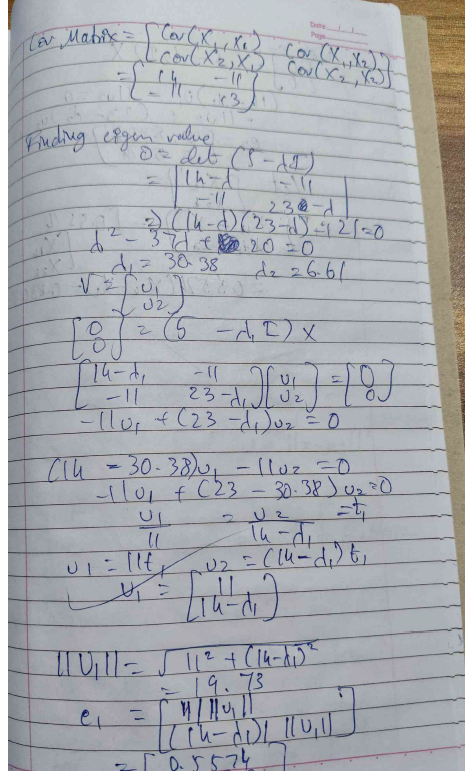 Date
Page
Cov Matrix = [ Cov(X1, X1) Cov(X1, X2)
Cov(X2, X1) Cov(X2, X2) ]
= [ 14 -11
-11 23 ]
Finding eigen value
0 = det (S - λI)
= | 14-λ -11
-11 23-λ |
=> ((14-λ)(23-λ) - 121 = 0
λ² - 37λ + 20 = 0
λ1 = 30.38 λ2 = 6.61
V = [ U1
U2 ]
[ 0
0 ] = (S - λ1 I) X
[ 14-λ1 -11
-11 23-λ1 ] [ U1
U2 ] = [ 0
0 ]
-11U1 + (23-λ1)U2 = 0
(14 - 30.38)U1 - 11U2 = 0
-11U1 + (23 - 30.38)U2 = 0
U1/11 = U2/14-λ1 = t1
U1 = 11t1 U2 = (14-λ1)t1
U1 = [ 11
14-λ1 ]
||U1|| = √11² + (14-λ1)²
= 19.73
e1 = [ 11/||U1||
(14-λ1)/||U1|| ]
= [ 0.5574 ]